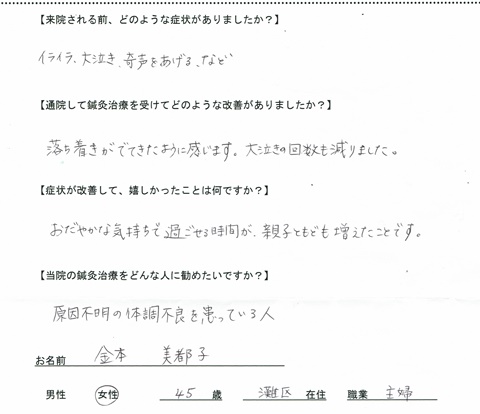 【来院される前、どのような症状がありましたか？】
イライラ、大泣き、奇声をあげる、など
【通院して鍼灸治療を受けてどのような改善がありましたか？】
落ち着きがでてきたように感じます。大泣きの回数も減りました。
【症状が改善して、嬉しかったことは何ですか？】
おだやかな気持ちで過ごせる時間が、親子ともども増えたことです。
【当院の鍼灸治療をどんな人に勧めたいですか？】
原因不明の体調不良を患っている人
お名前 金本 美都子
男性 女性 45 歳 灘区 在住 職業 主婦